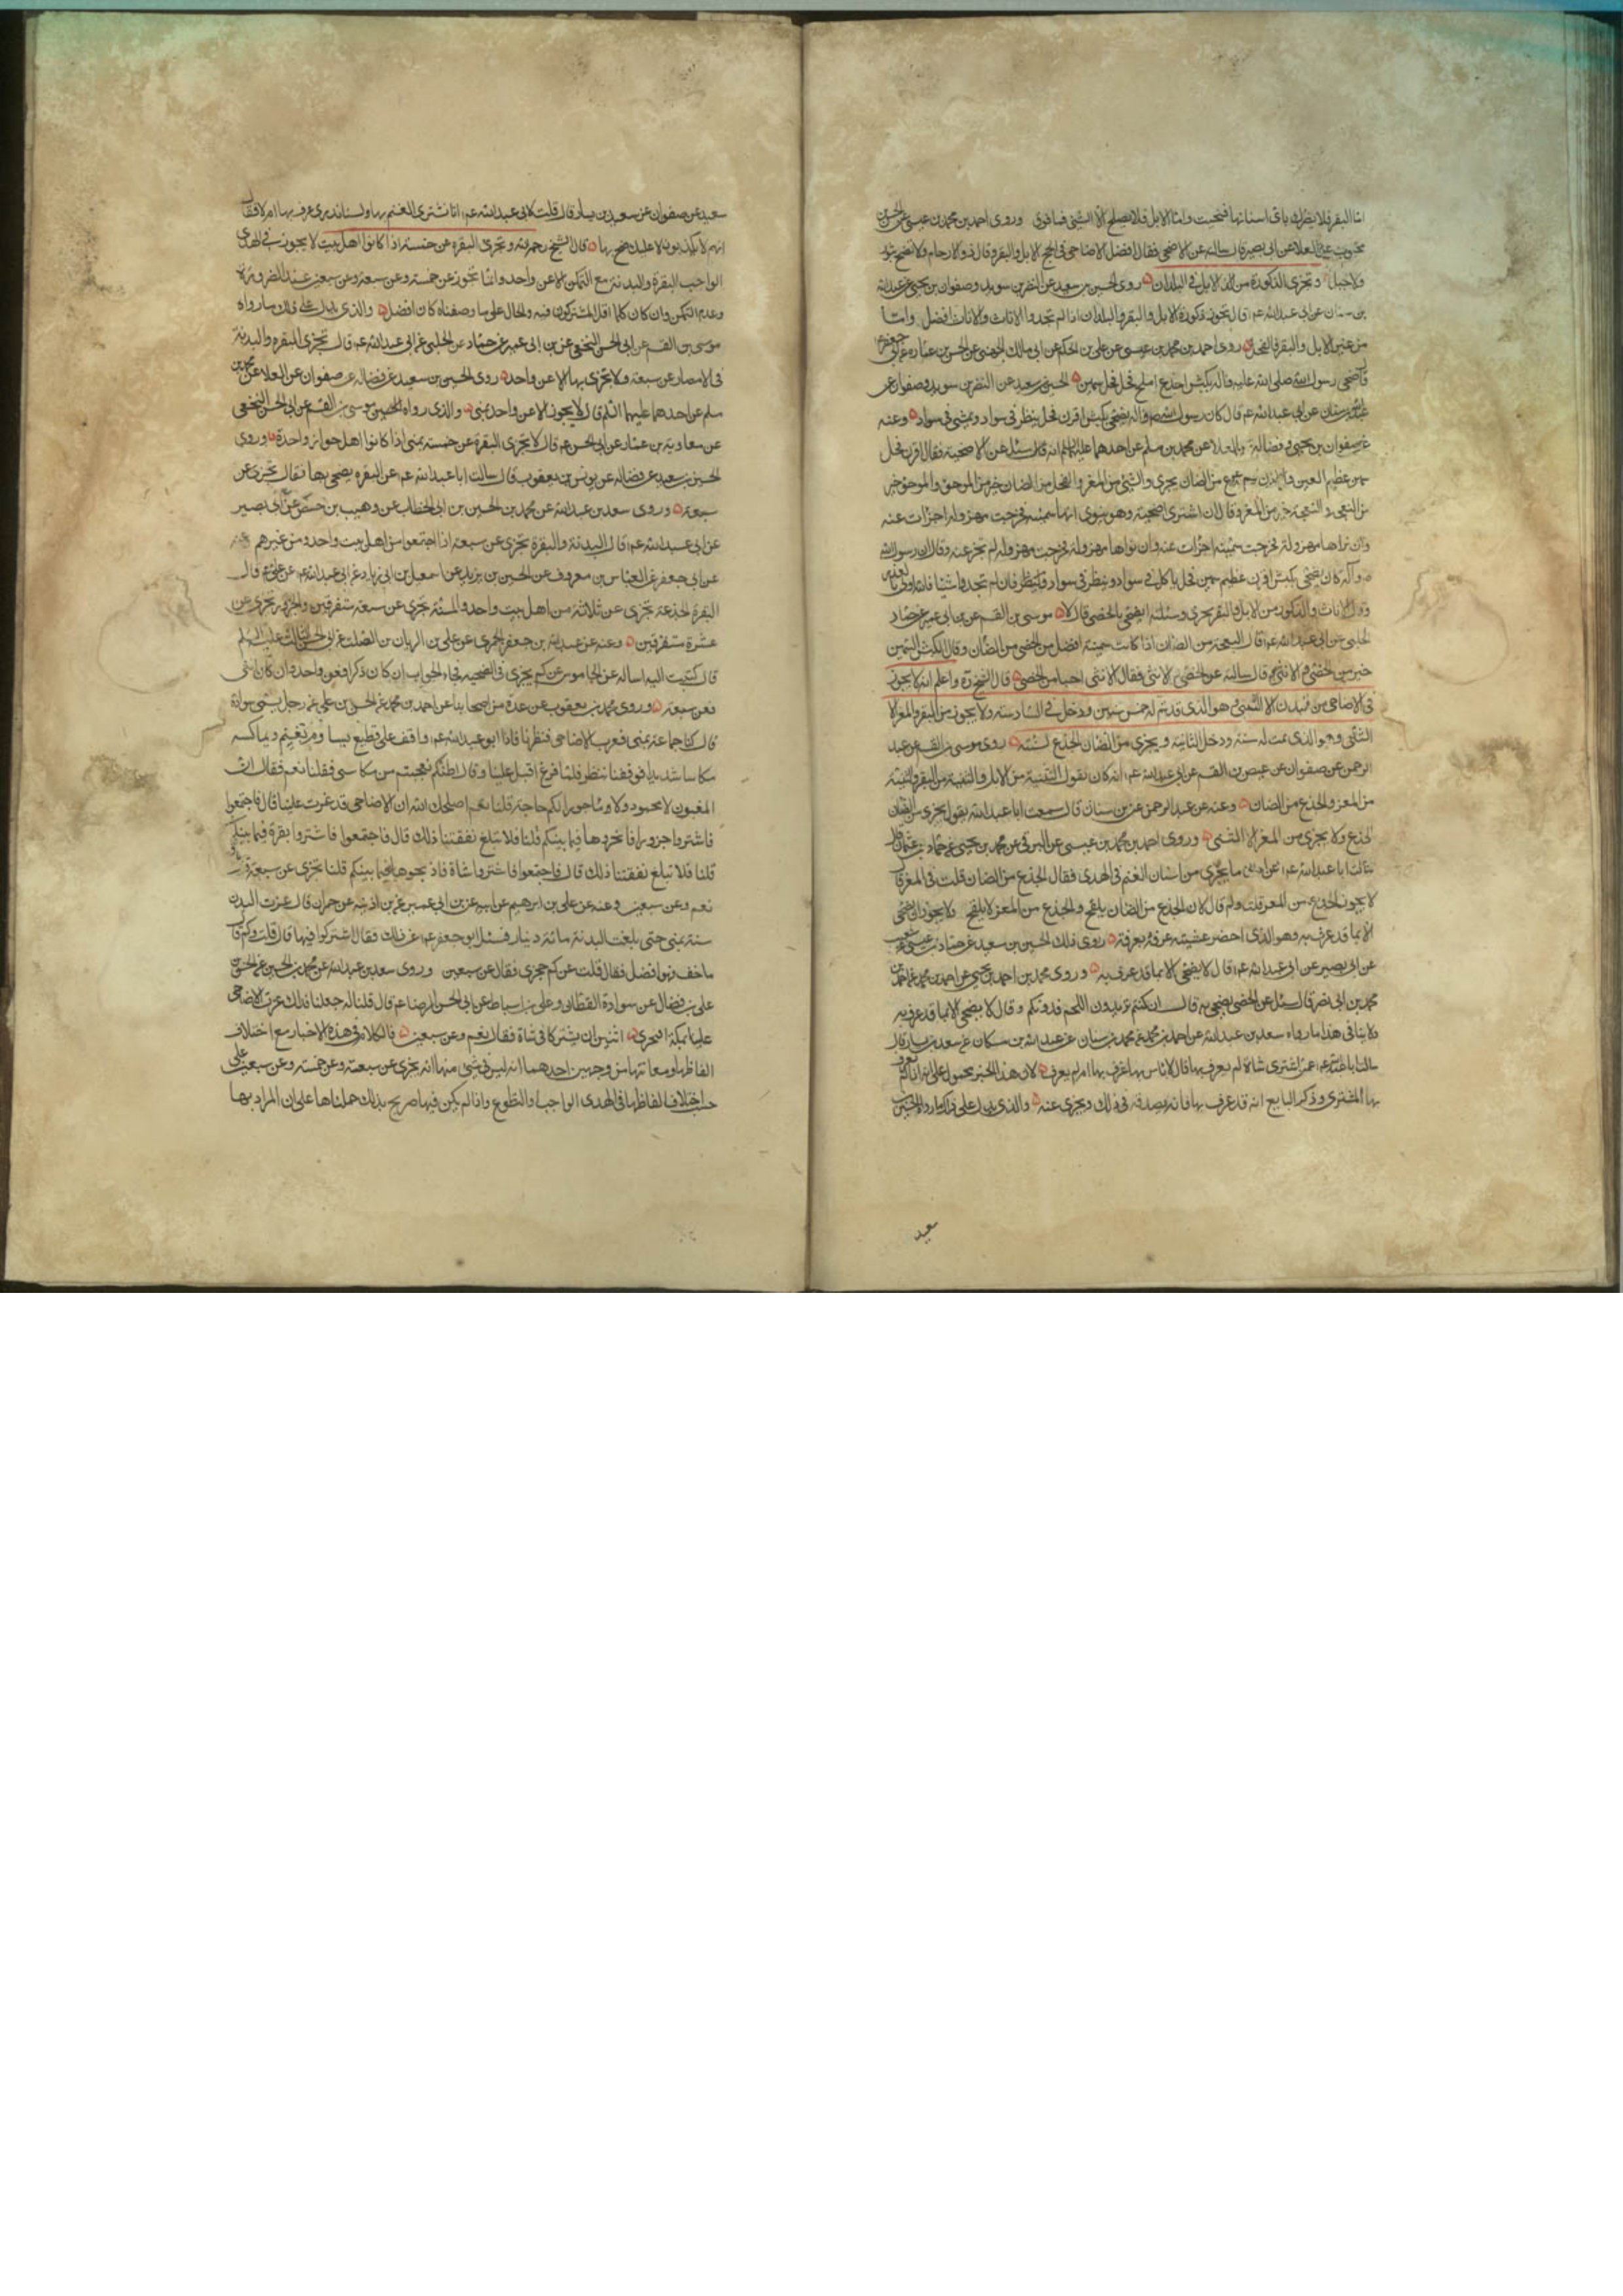 اما البقر فلا يضرك باى اسنانها ضحيت واما الابل فلا يصلح الا الثنى فما فوق وروى احمد بن محمد بن عيسى عن الحسن
محبوب عن العلا عن ابى بصير قال سالته عن الاضحى فقال افضل الاضاحى فى الحج الابل والبقر وقال ذو والارحام ولا تضح بثور
ولا جمل وتجزى الذكورة من الابل فى البلدان روى الحسين بن سعيد عن النضر بن سويد وصفوان بن يحيى عن عبدالله
بن سنان عن ابى عبدالله عم قال تجوز ذكورة الابل والبقر فى البلدان اذا لم تجدوا الاناث والاناث افضل واما
من غير الابل والبقر فالفحل روى احمد بن محمد بن عيسى عن على بن الحكم عن ابى مالك الجهنى عن الحسن بن عماره عن ابى جعفر عم
قال ضحى رسول الله صلى الله عليه واله بكبش اجذع املح فحل سمين الحسين بن سعيد عن النضر بن سويد وصفوان عن
عبدالله بن سنان عن ابى عبدالله عم قال كان رسول الله ص واله يضحى بكبش اقرن فحل ينظر فى سواد ويمشى فى سواد وعنه
عن صفوان بن يحيى وفضالة عن العلا عن محمد بن مسلم عن احدهما عليهما السلم انه سئل عن الاضحية فقال اقرن فحل
سمين عظيم العين والاذن والجذع من الضان يجزى والثنى من المعز والفحل من الضان خير من الموجوء والموجوء خير
من النعجة والنعجة خير من المعز وقال ان اشترى اضحية وهو ينوى انها سمينة فخرجت مهزولة اجزات عنه
وان نواها مهزولة فخرجت سمينة اجزات عنه وان نواها مهزولة فخرجت مهزولة لم تجز عنه وقال ان رسول الله
ص وآله كان يضحى بكبش اقرن عظيم سمين فحل ياكل فى سواد وينظر فى سواد فان لم تجدوا شيئا فالله اولى بالعذر
وقال الاناث والذكور من الابل والبقر يجزى وسئلته ايضحى بالخصى قال لا موسى بن القسم عن ابن ابى عمير عن حماد
الحلبى عن ابى عبدالله عم قال النعجة من الضان اذا كانت سمينة افضل من الخصى من الضان وقال الكبش السمين
خير من الخصى ومن الانثى وقال سالته عن الخصى والانثى فقال الانثى احب الى من الخصى قال الشيخ ره واعلم انه لا يجوز
فى الاضاحى من البدن الا الثنى وهو الذى قد تم له خمس سنين ودخل فى السادسة ولا يجوز من البقر والمعز الا
الثنى وهو الذى تمت له سنة ودخل الثانية ويجزى من الضان الجذع لسنة روى موسى بن القسم عن عبد
الرحمن عن صفوان عن عيص بن القسم عن ابى عبدالله عم انه كان يقول الثنية من الابل والثنية من البقر والثنية
من المعز والجذع من الضان وعنه عن عبد الرحمن عن ابن سنان قال سمعت ابا عبدالله يقول يجزى من الضان
الجذع ولا يجزى من المعز الا الثنى وروى احمد بن محمد بن عيسى عن البرقى عن محمد بن يحيى عن حماد بن عثمان قال
سالت ابا عبدالله عم عن ادنى ما يجزى من اسنان الغنم فى الهدى فقال الجذع من الضان قلت فى المعز قال
لا يجوز الجذع من المعز قلت ولم قال لان الجذع من الضان يلقح والجذع من المعز لا يلقح ولا يجوز ان يضحى
الا بما قد عرف به وهو الذى احضر عشية عرفة بعرفة روى ذلك الحسين بن سعيد عن حماد بن عيسى عن شعيب
عن ابى بصير عن ابى عبدالله عم قال لا يضحى الا بما قد عرف به وروى محمد بن احمد بن يحيى عن احمد بن محمد عن احمد بن
محمد بن ابى نصر قال سئل عن الخصى يضحى به قال ان كنتم تريدون اللحم فدونكم وقال لا يضحى الا بما قد عرف به
ولا ينافى هذا ما رواه سعد بن عبدالله عن احمد بن محمد عن محمد بن سنان عن عبدالله بن مسكان عن سعيد بن يسار قال
سالت ابا عبدالله عم عمن اشترى شاة لم يعرف بها قال لا باس بها عرف بها ام لم يعرف لان هذا الخبر محمول على انه اذا لم يعرف
بها المشترى وذكر البايع انه قد عرف بها فانه يصدقه فى ذلك ويجزى عنه والذى يدل على ذلك ما رواه الحسين بن
سعيد
سعيد عن صفوان عن سعيد بن يسار قال قلت لابى عبدالله عم انا نشترى الغنم بمنى ولسنا ندرى عرف بها ام لا فقال
انهم لا يكذبون لا عليك ضح بها قال الشيخ رحمه الله وتجزى البقرة عن خمسة اذا كانوا اهل بيت لا يجوز فى الهدى
الواجب البقرة والبدنة مع التمكن الا عن واحد وانما تجوز عن خمسة وعن سبعة وعن سبعين عند الضرورة
وعدم التمكن وان كان كلما اقل المشتركون فيه والحال على ما وصفناه كان افضل والذى يدل على ذلك ما رواه
موسى بن القسم عن ابى الحسن النخعى عن ابن ابى عمير عن حماد عن الحلبى عن ابى عبدالله عم قال تجزى البقره والبدنة
فى الامصار عن سبعة ولا تجزى بمنى الا عن واحد روى الحسين بن سعيد عن فضاله عن صفوان عن العلا عن محمد بن
مسلم عن احدهما عليهما السلم قال لا يجوز الا عن واحد بمنى والذى رواه موسى بن القسم عن ابى الحسن النخعى
عن معاوية بن عمار عن ابى الحسن عم قال لا تجزى البقرة عن خمسة بمنى اذا كانوا اهل خوان واحدة وروى
الحسين بن سعيد عن فضاله عن يونس بن يعقوب قال سالت ابا عبدالله عم عن البقره يضحى بها فقال تجزى عن
سبعة وروى سعد بن عبدالله عن محمد بن الحسين بن ابى الخطاب عن وهيب بن حفص عن ابى بصير
عن ابى عبدالله عم قال البدنة والبقرة تجزى عن سبعة اذا اجتمعوا من اهل بيت واحد ومن غيرهم وعنه
عن ابى جعفر عن العباس بن معروف عن الحسين بن يزيد عن اسمعيل بن ابى زياد عن ابى عبدالله عم عن على عم قال
البقرة الجذعة تجزى عن ثلاثة من اهل بيت واحد والمسنة تجزى عن سبعة متفرقين والجزور تجزى عن
عشرة متفرقين وعنه عن عبدالله بن جعفر الحميرى عن على بن الريان بن الصلت عن ابى الحسن الثالث عليه السلم
قال كتبت اليه اساله عن الجاموس عن كم يجزى فى الضحية فجاء الجواب ان كان ذكرا فعن واحد وان كان انثى
فعن سبعة وروى محمد بن يعقوب عن عدة من اصحابنا عن احمد بن محمد عن الحسن بن على عن رجل يسمى سوادة
قال كنا جماعة بمنى فعزت الاضاحى فنظرنا فاذا ابو عبدالله عم واقف على قطيع يساوم بغنم ويماكسه
مكاسا شديدا فوقفنا ننظر فلما فرغ اقبل علينا وقال اظنكم تعجبتم من مكاسى فقلنا نعم فقال ان
المغبون لا محمود ولا ماجور الكم حاجة قلنا نعم اصلحك الله ان الاضاحى قد عزت علينا قال فاجتمعوا
فاشتروا جزورا فانحروها فيما بينكم قلنا فلا تبلغ نفقتنا ذلك قال فاجتمعوا فاشتروا بقرة فيما بينكم
قلنا فلا تبلغ نفقتنا ذلك قال فاجتمعوا فاشتروا شاة فاذبحوها فيما بينكم قلنا تجزى عن سبعة قال
نعم وعن سبعين وعنه عن على بن ابرهيم عن ابيه عن ابن ابى عمير عن ابن اذينه عن حمران قال عزت البدن
سنة بمنى حتى بلغت البدنة مائة دينار فسئل ابو جعفر عم عن ذلك فقال اشتركوا فيها قال قلت وكم قال
ما خف فهو افضل فقال قلت عن كم يجزى فقال عن سبعين وروى سعد بن عبدالله عن محمد بن الحسين عن الحسن بن
على بن فضال عن سوادة القطان وعلى بن اسباط عن ابى الحسن الرضا عم قال قلنا له جعلنا فداك عزت الاضاحى
علينا بمكة افيجزى اثنين ان يشتركا فى شاة فقال نعم وعن سبعين فالكلام فى هذه الاخبار مع اختلاف
الفاظها ومعانيها من وجهين احدهما انه ليس فى شئ منها انه يجزى عن سبعة وعن خمسة وعن سبعين على
حسب اختلاف الفاظها فى الهدى الواجب او التطوع واذا لم يكن فيها صريح بذلك حملناها على ان المراد بها